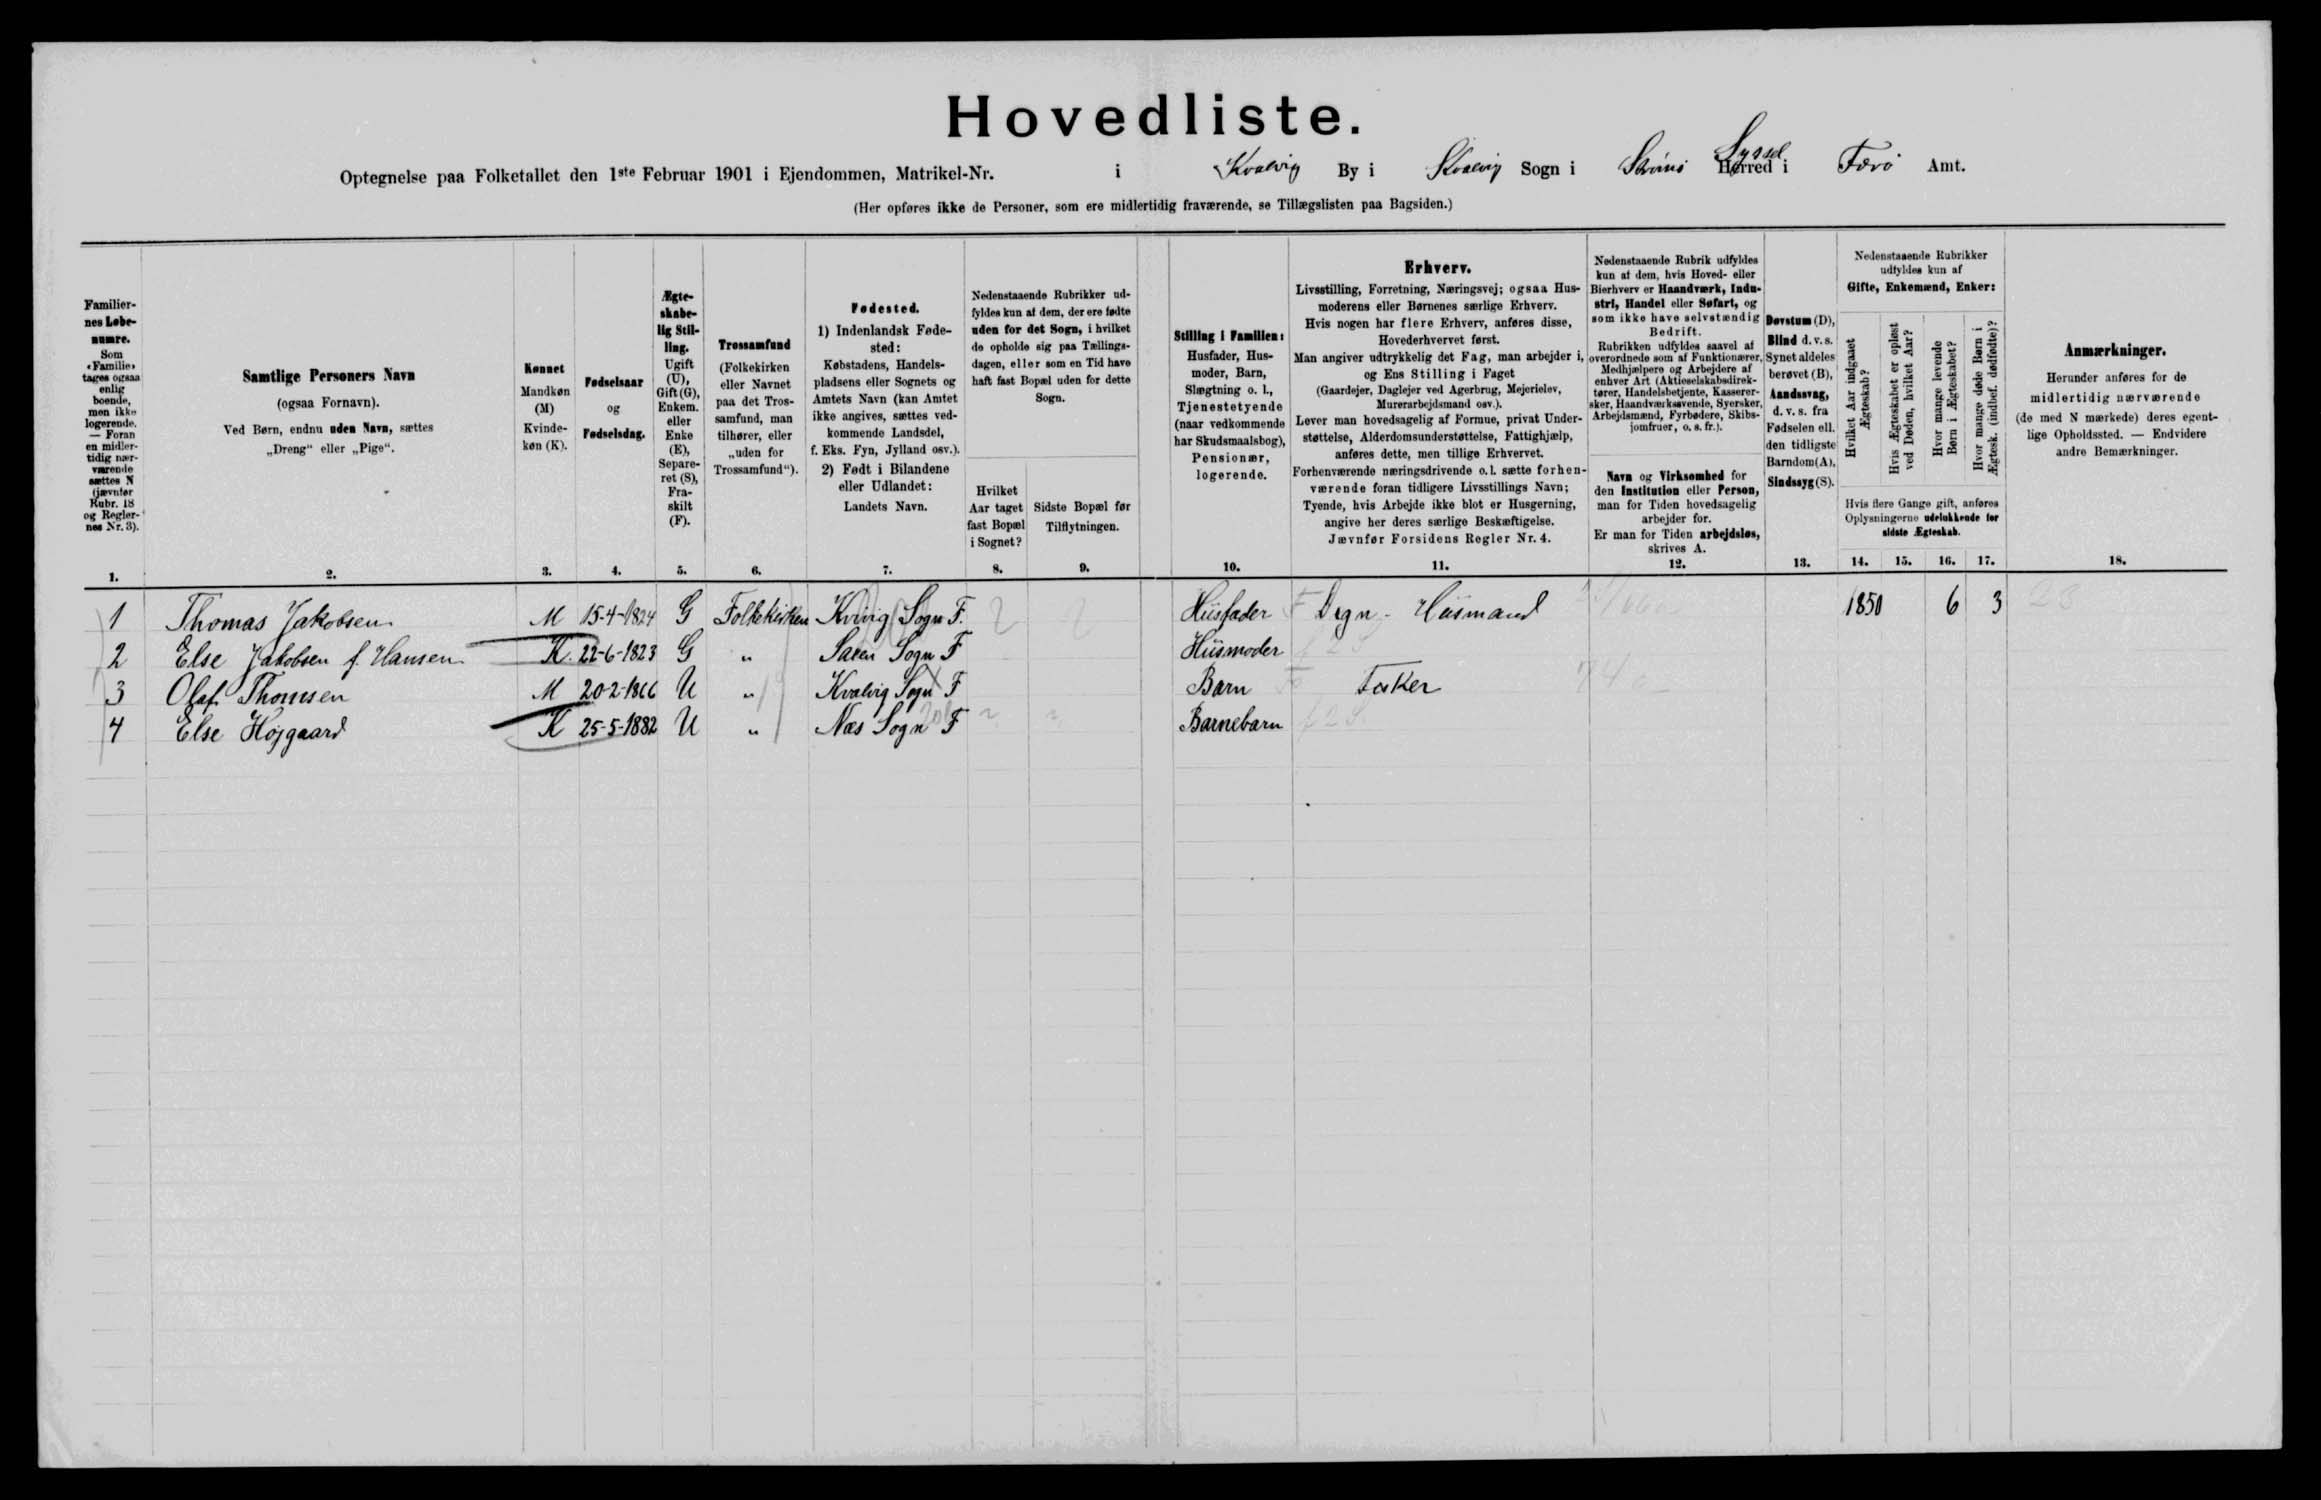 Hovedliste.
Optegnelse paa Folketallet den 1ste Februar 1901 i Ejendommen, Matrikel-Nr. i Kvalvig By i Kvalvig Sogn i Strömö Herred Syssel i Færö Amt.
(Her opføres ikke de Personer, som ere midlertidig fraværende, se Tillægslisten paa Bagsiden.)
Familier-
nes Løbe-
numre.
Som
«Familie»
tages ogsaa
enlig
boende,
men ikke
logerende.
— Foran
en midler-
tidig nær-
værende
sættes N
(jævnfør
Rubr. 18
og Regler-
nes Nr. 3).
1.
Samtlige Personers Navn
(ogsaa Fornavn).
Ved Børn, endnu uden Navn, sættes
„Dreng" eller „Pige".
2.
Kønnet
Mandkøn
(M)
Kvinde-
køn (K).
3.
Fødselsaar
og
Fødselsdag.
4.
Ægte-
skabe-
lig Stil-
ling.
Ugift
(U),
Gift (G),
Enkem.
eller
Enke
(E),
Separe-
ret (S),
Fra-
skilt
(F).
5.
Trossamfund
(Folkekirken
eller Navnet
paa det Tros-
samfund, man
tilhører, eller
„uden for
Trossamfund").
6.
Fødested.
1) Indenlandsk Føde-
sted:
Købstadens, Handels-
pladsens eller Sognets og
Amtets Navn (kan Amtet
ikke angives, sættes ved-
kommende Landsdel,
f. Eks. Fyn, Jylland osv.).
2) Født i Bilandene
eller Udlandet:
Landets Navn.
7.
Nedenstaaende Rubrikker ud-
fyldes kun af dem, der ere fødte
uden for det Sogn, i hvilket
de opholde sig paa Tællings-
dagen, eller som en Tid have
haft fast Bopæl uden for dette
Sogn.
Hvilket
Aar taget
fast Bopæl
i Sognet?
8.
Sidste Bopæl før
Tilflytningen.
9.
Stilling i Familien:
Husfader, Hus-
moder, Barn,
Slægtning o. l.,
Tjenestetyende
(naar vedkommende
har Skudsmaalsbog),
Pensionær,
logerende.
10.
Erhverv.
Livsstilling, Forretning, Næringsvej; ogsaa Hus-
moderens eller Børnenes særlige Erhverv.
Hvis nogen har flere Erhverv, anføres disse,
Hovederhvervet først.
Man angiver udtrykkelig det Fag, man arbejder i,
og Ens Stilling i Faget
(Gaardejer, Daglejer ved Agerbrug, Mejerielev,
Murerarbejdsmand osv.).
Lever man hovedsagelig af Formue, privat Under-
støttelse, Alderdomsunderstøttelse, Fattighjælp,
anføres dette, men tillige Erhvervet.
Forhenværende næringsdrivende o. l. sætte forhen-
værende foran tidligere Livsstillings Navn;
Tyende, hvis Arbejde ikke blot er Husgerning,
angive her deres særlige Beskæftigelse.
Jævnfør Forsidens Regler Nr. 4.
11.
Nedenstaaende Rubrik udfyldes
kun af dem, hvis Hoved- eller
Bierhverv er Haandværk, Indu-
stri, Handel eller Søfart, og
som ikke have selvstændig
Bedrift.
Rubrikken udfyldes saavel af
overordnede som af Funktionærer,
Medhjælpere og Arbejdere af
enhver Art (Aktieselskabsdirek-
tører, Handelsbetjente, Kasserer-
sker, Haandværkssvende, Syersker,
Arbejdsmænd, Fyrbødere, Skibs-
jomfruer, o. s. fr.).
Navn og Virksomhed for
den Institution eller Person,
man for Tiden hovedsagelig
arbejder for.
Er man for Tiden arbejdsløs,
skrives A.
12.
Døvstum (D),
Blind d. v. s.
Synet aldeles
berøvet (B),
Aandssvag,
d. v. s. fra
Fødselen ell.
den tidligste
Barndom (A),
Sindssyg (S).
13.
Nedenstaaende Rubrikker
udfyldes kun af
Gifte, Enkemænd, Enker:
Hvilket Aar indgaaet
Ægteskab?
Hvis Ægteskabet er opløst
ved Døden, hvilket Aar?
Hvor mange levende
Børn i Ægteskabet?
Hvor mange døde Børn i
Ægtesk. (indbef. dødfødte)?
Hvis flere Gange gift, anføres
Oplysningerne udelukkende for
sidste Ægteskab.
14. 15. 16. 17.
Anmærkninger.
Herunder anføres for de
midlertidig nærværende
(de med N mærkede) deres egent-
lige Opholdssted. — Endvidere
andre Bemærkninger.
18.
1 Thomas Jakobsen M 15-4-1824 G Folkekirken Kvivig Sogn F. Husfader Degn - Husmand 1850 6 3 23
2 Else Jakobsen f. Hansen K. 22-6-1823 G " Saxen Sogn F Husmoder
3 Olaf Thomsen M 20-2-1866 U " Kvalvig Sogn F Barn Fisker
4 Else Højgaard K 25-5-1882 U " Næs Sogn F Barnebarn